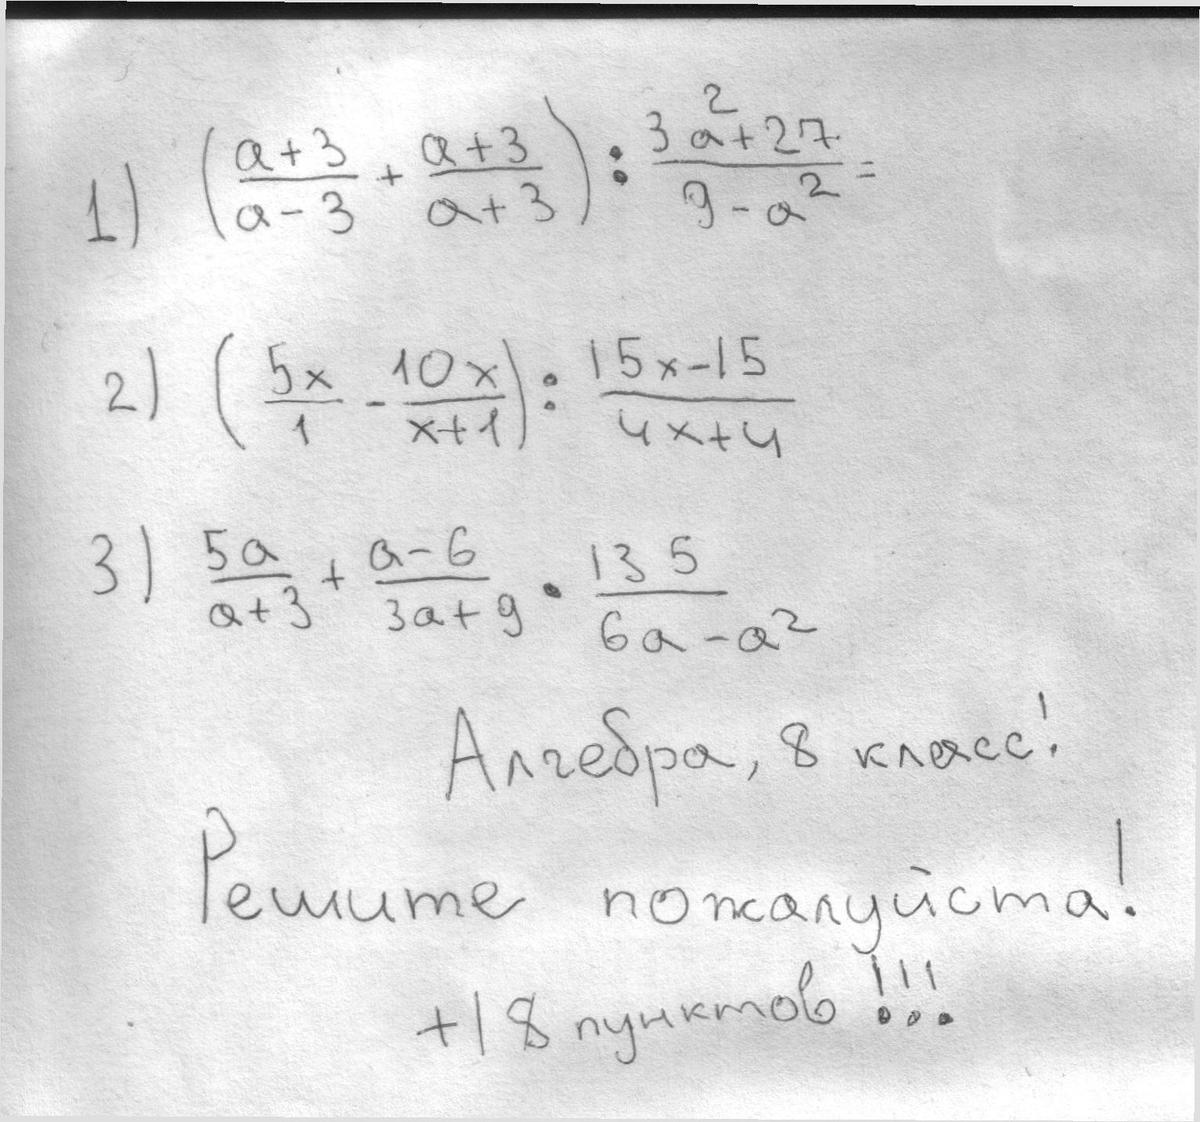 1) (a+3/a-3 + a+3/a+3) : 3a²+27/9-a² =
2) (5x/1 - 10x/x+1) : 15x-15/4x+4
3) 5a/a+3 + a-6/3a+9 · 135/6a-a²
Алгебра, 8 класс!
Решите пожалуйста!
+18 пунктов!!!